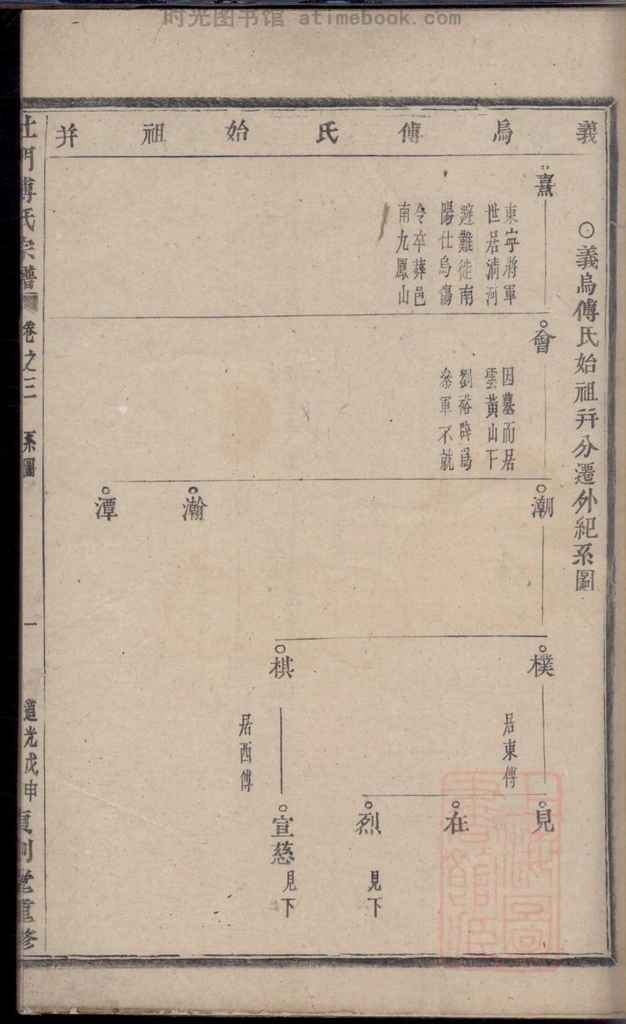 时光图书馆 atimebook.com
義烏傅氏始祖并
○義烏傅氏始祖并分遷外紀系圖
熹
東宇將軍
世居清河
避難徙南
陽仕烏傷
令卒葬邑
南九鳳山
會
因墓而居
雲黃山下
劉裕辟為
叅軍不就
潮
瀚
潭
樸
居東傅
棋
居西傅
見
在
烈
見下
宣慈
見下
傅氏宗譜
卷之三
系圖
一
道光戊申
重修